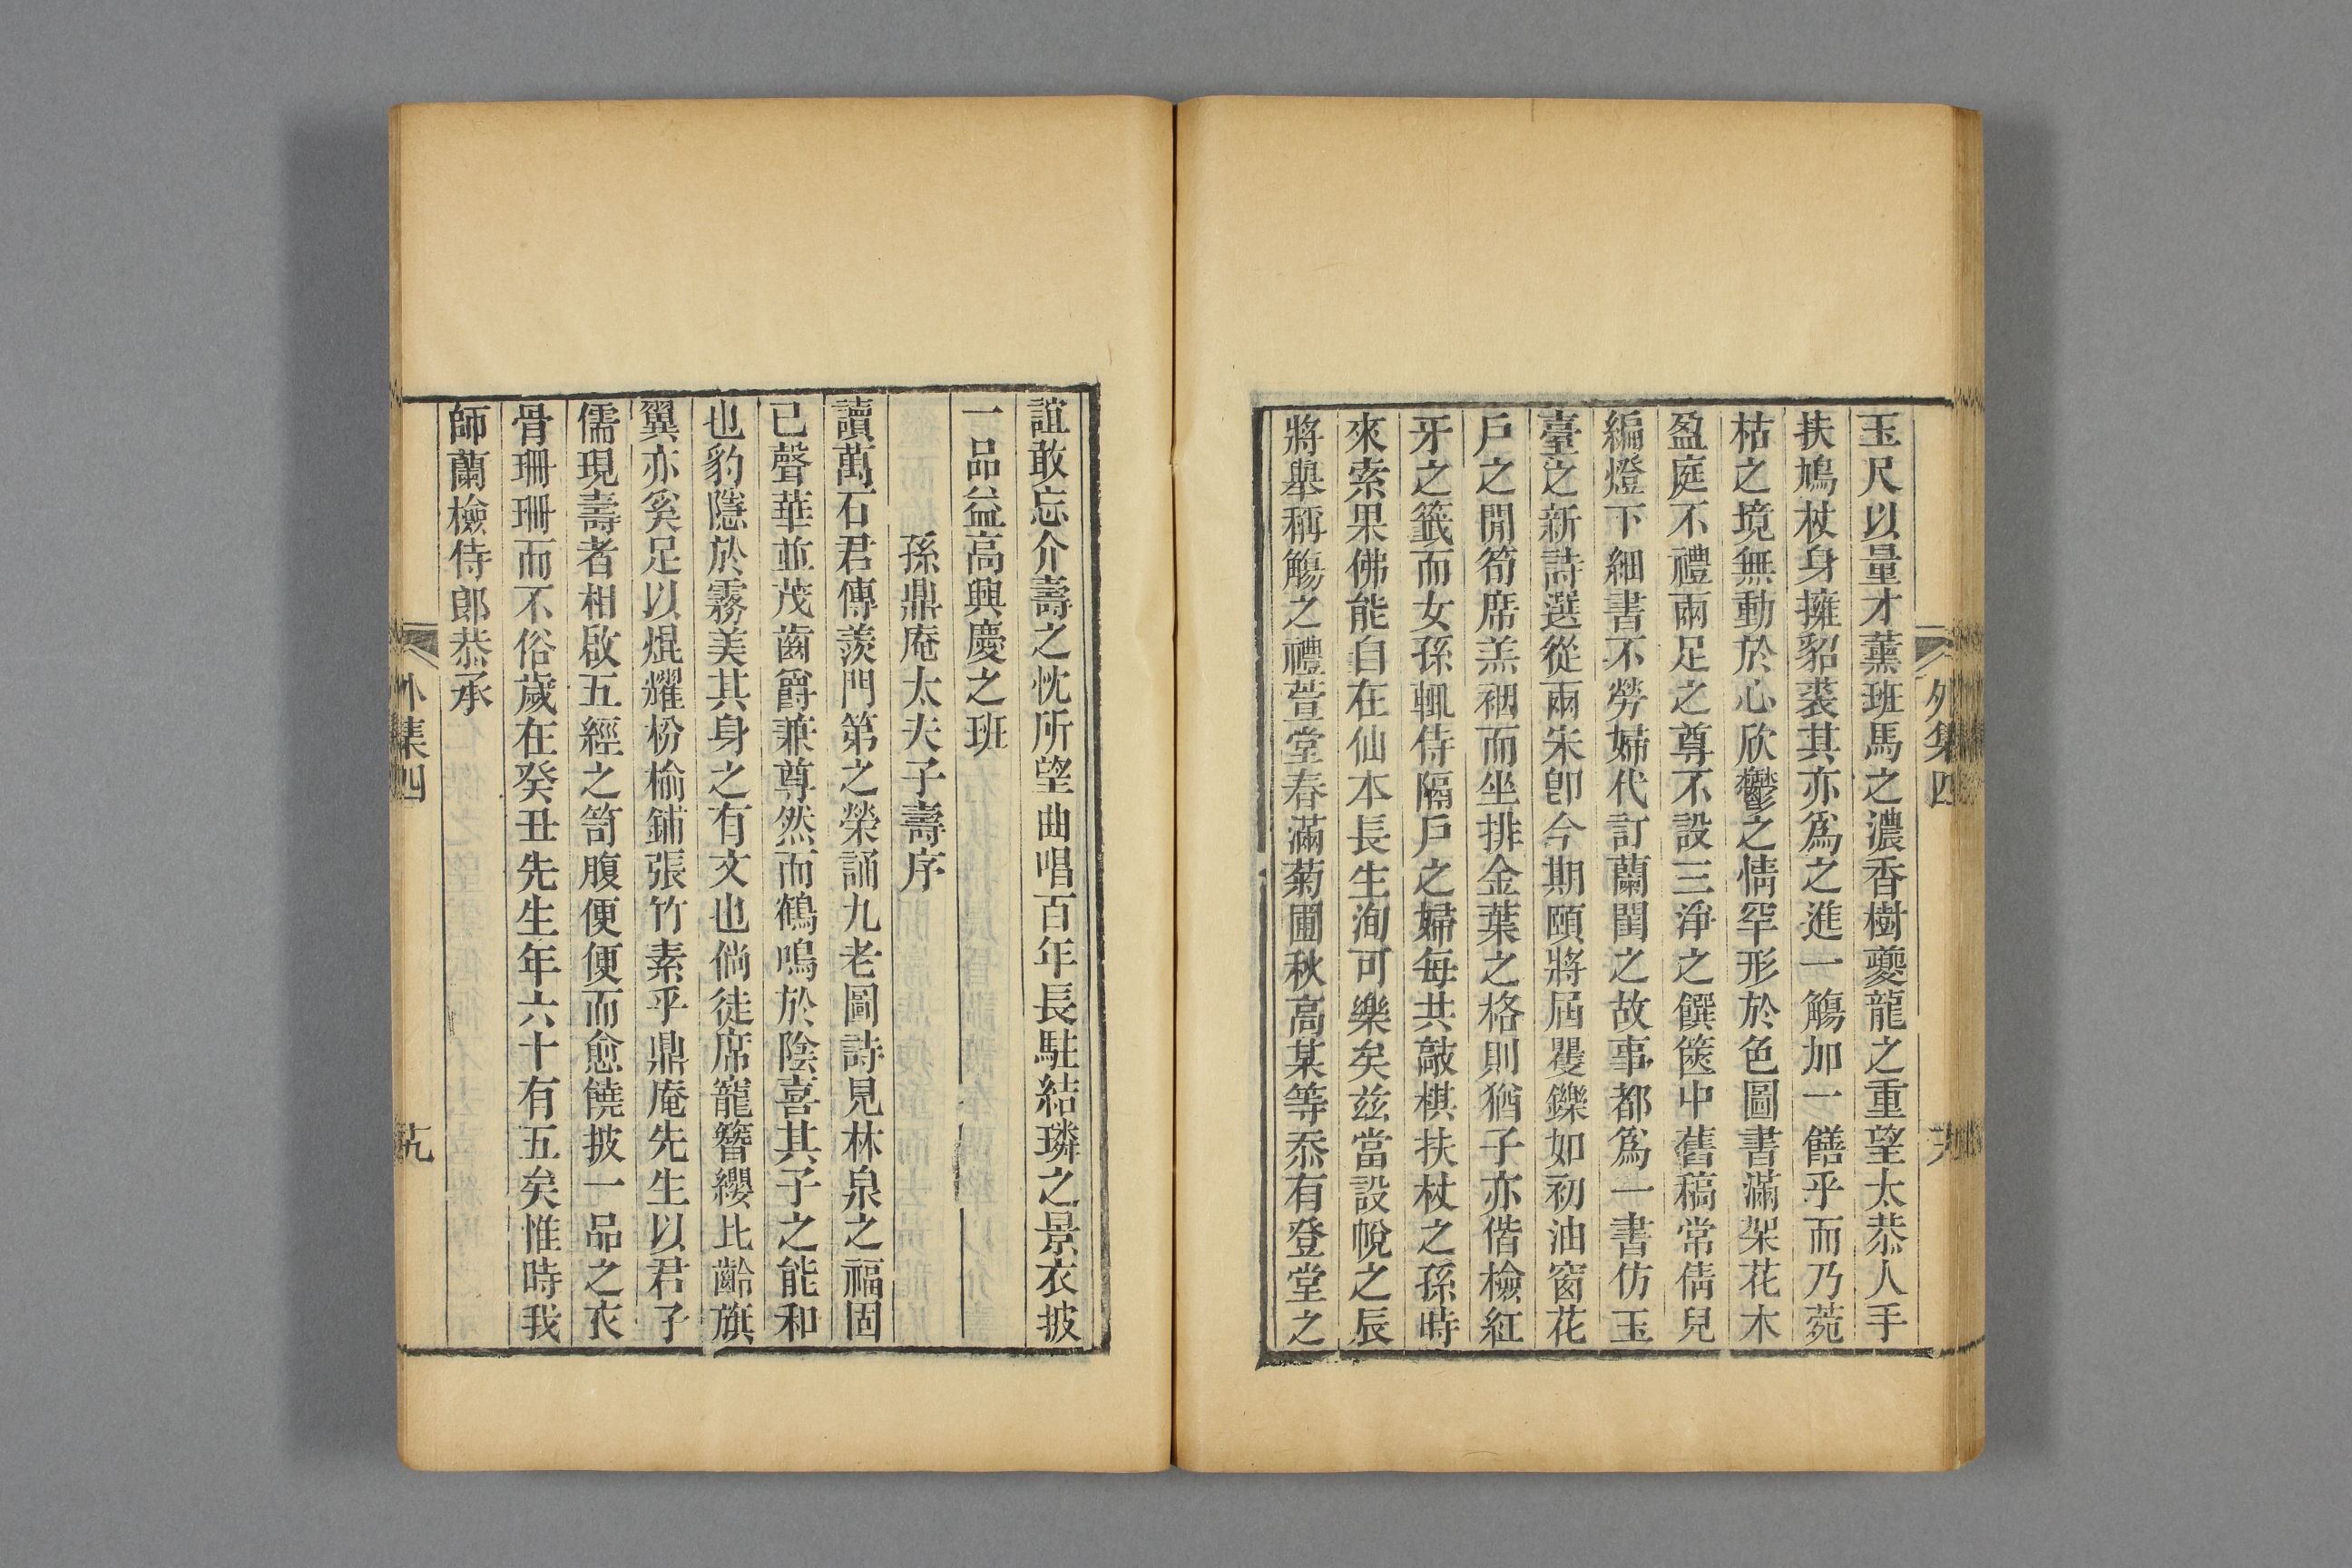 外集四
玉尺以量才薰班馬之濃香樹夔龍之重望太恭人手
扶鳩杖身擁貂裘其亦爲之進一觴加一饍乎而乃菀
枯之境無動於心欣鬱之情罕形於色圖書滿架花木
盈庭不禮兩足之尊不設三淨之饌篋中舊稿常倩兒
編燈下細書不勞婦代訂蘭閨之故事都爲一書仿玉
臺之新詩選從兩宋卽今期頤將屆矍鑠如初油窗花
戶之閒筍席羔裀而坐排金葉之格則猶子亦偕檢紅
牙之籤而女孫輒侍隔戶之婦每共敲棋扶杖之孫時
來索果佛能自在仙本長生洵可樂矣茲當設帨之辰
將舉稱觴之禮萱堂春滿菊圃秋高某等忝有登堂之
誼敢忘介壽之忱所望曲唱百年長駐結璘之景衣披
一品益高興慶之班
孫鼎庵太夫子壽序
讀萬石君傳羨門第之榮誦九老圖詩見林泉之福固
已聲華並茂齒爵兼尊然而鶴鳴於陰喜其子之能和
也豹隱於霧美其身之有文也倘徒席寵簪纓比齡旗
翼亦奚足以焜耀枌榆鋪張竹素乎鼎庵先生以君子
儒現壽者相啟五經之笥腹便便而愈饒披一品之衣
骨珊珊而不俗歲在癸丑先生年六十有五矣惟時我
師蘭檢侍郎恭承
外集四